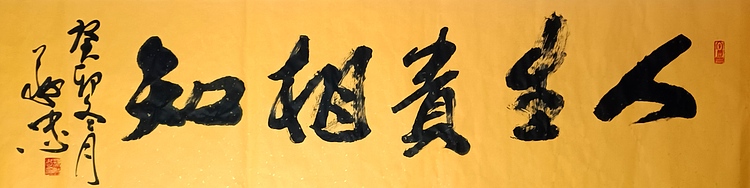 人生貴相知
癸卯冬月